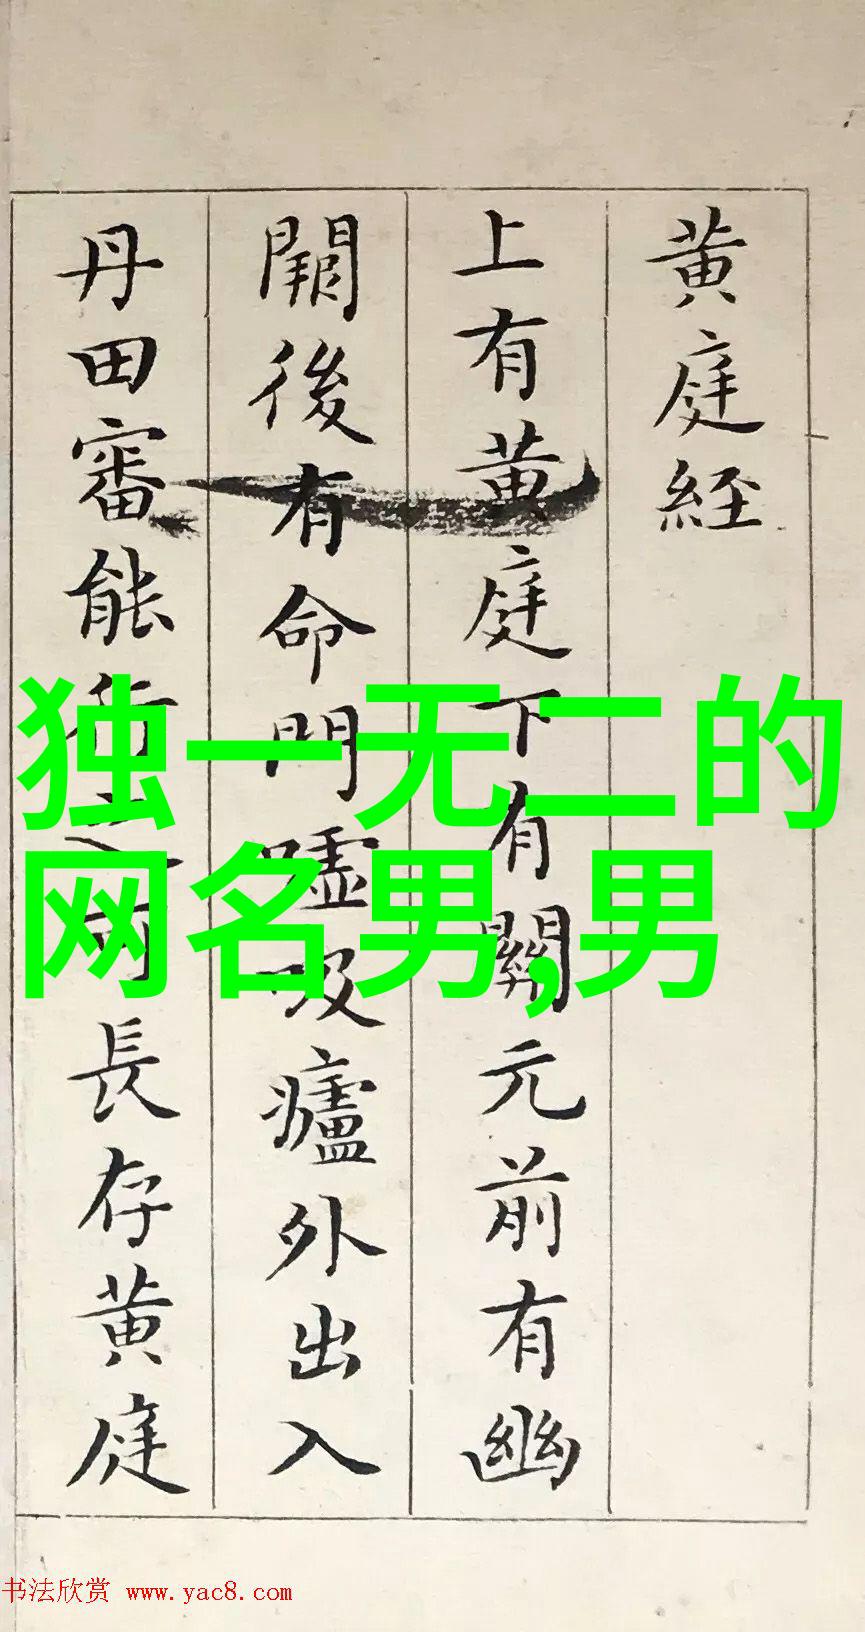 黄庭經
上有黄庭下有關元前有幽
闕後有命門嘘吸廬外出入
丹田審能行之可長存黄庭
独一无二的
网名男,男
书法欣赏 www.yac8.com